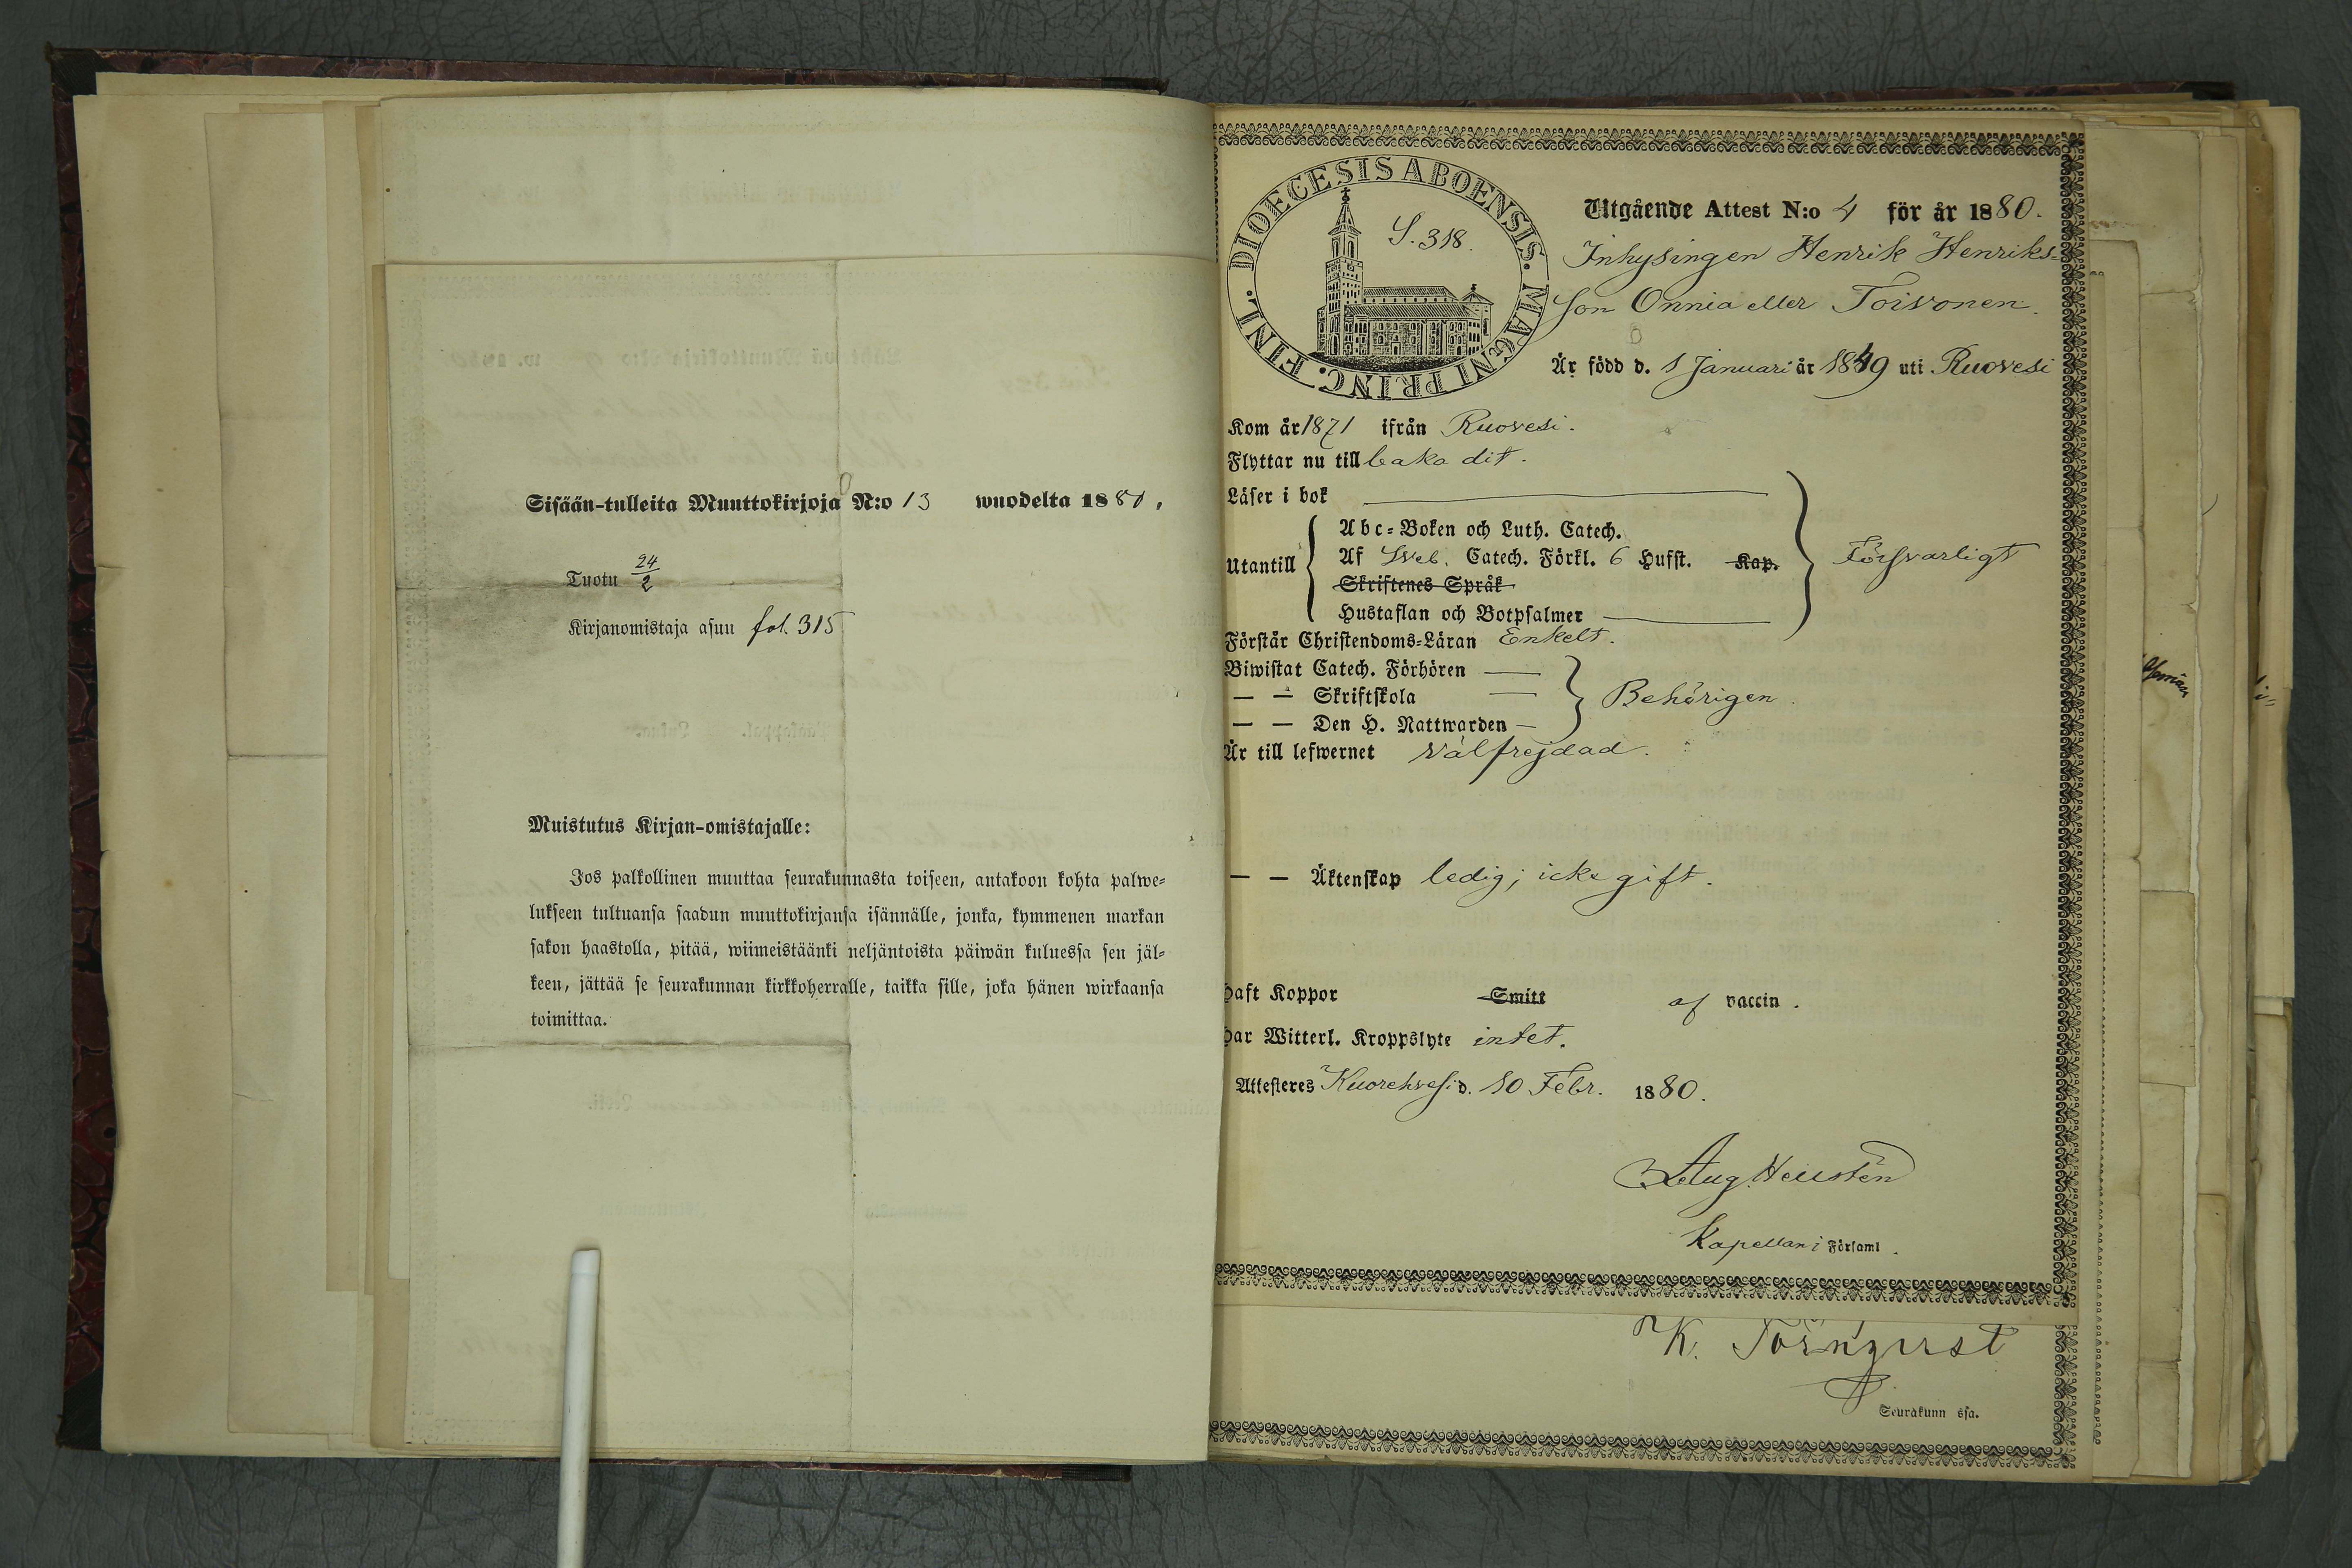 Sisään-tulleita Muuttokirjoja N:o 13 wuodelta 1880.
Tuotu 24/2
Kirjanomistaja asuu fol. 315
Muistutus Kirjan-omistajalle:
Jos palkollinen muuttaa seurakunnasta toiseen, antakoon kohta palwe=
lukseen tultuansa saadun muuttokirjansa isännälle, jonka, kymmenen markan
sakon haastolla, pitää, wiimeistäänki neljäntoista päiwän kuluessa sen jäl=
keen, jättää se seurakunnan kirkkoherralle, taikka sille, joka hänen wirkaansa
toimittaa.
DIOECESIS ABOENSIS. MAGNI PRINC. FINL.
S. 318.
Utgående Attest N:o 4 för år 1880.
Inhysingen Henrik Henriks=
son Onnia eller Toivonen.
Är född d. 1 Januari år 1849 uti Ruovesi
Kom år 1871 ifrån Ruovesi.
Flyttar nu till baka dit.
Läser i bok
Utantill
Abc=Boken och Luth. Catech.
Af Sveb. Catech. Förkl. 6 Hufst. Kap.
Skriftenes Språk
Hustaflan och Botpsalmer
Försvarligt
Förstår Christendoms=Läran Enkelt.
Biwistat Catech. Förhören
— — Skriftskola
— — Den H. Nattwarden
Behörigen.
Är till lefwernet välfrejdad.
— — Äktenskap ledig; icke gift.
Haft Koppor Smitt af vaccin.
Har Witterl. Kroppslyte intet.
Attesteres Kuorehvesi d. 10 Febr. 1880.
Aug. Heusten
Kapellan i Församl.
K. Törnqvist
Seurakunn ssa.